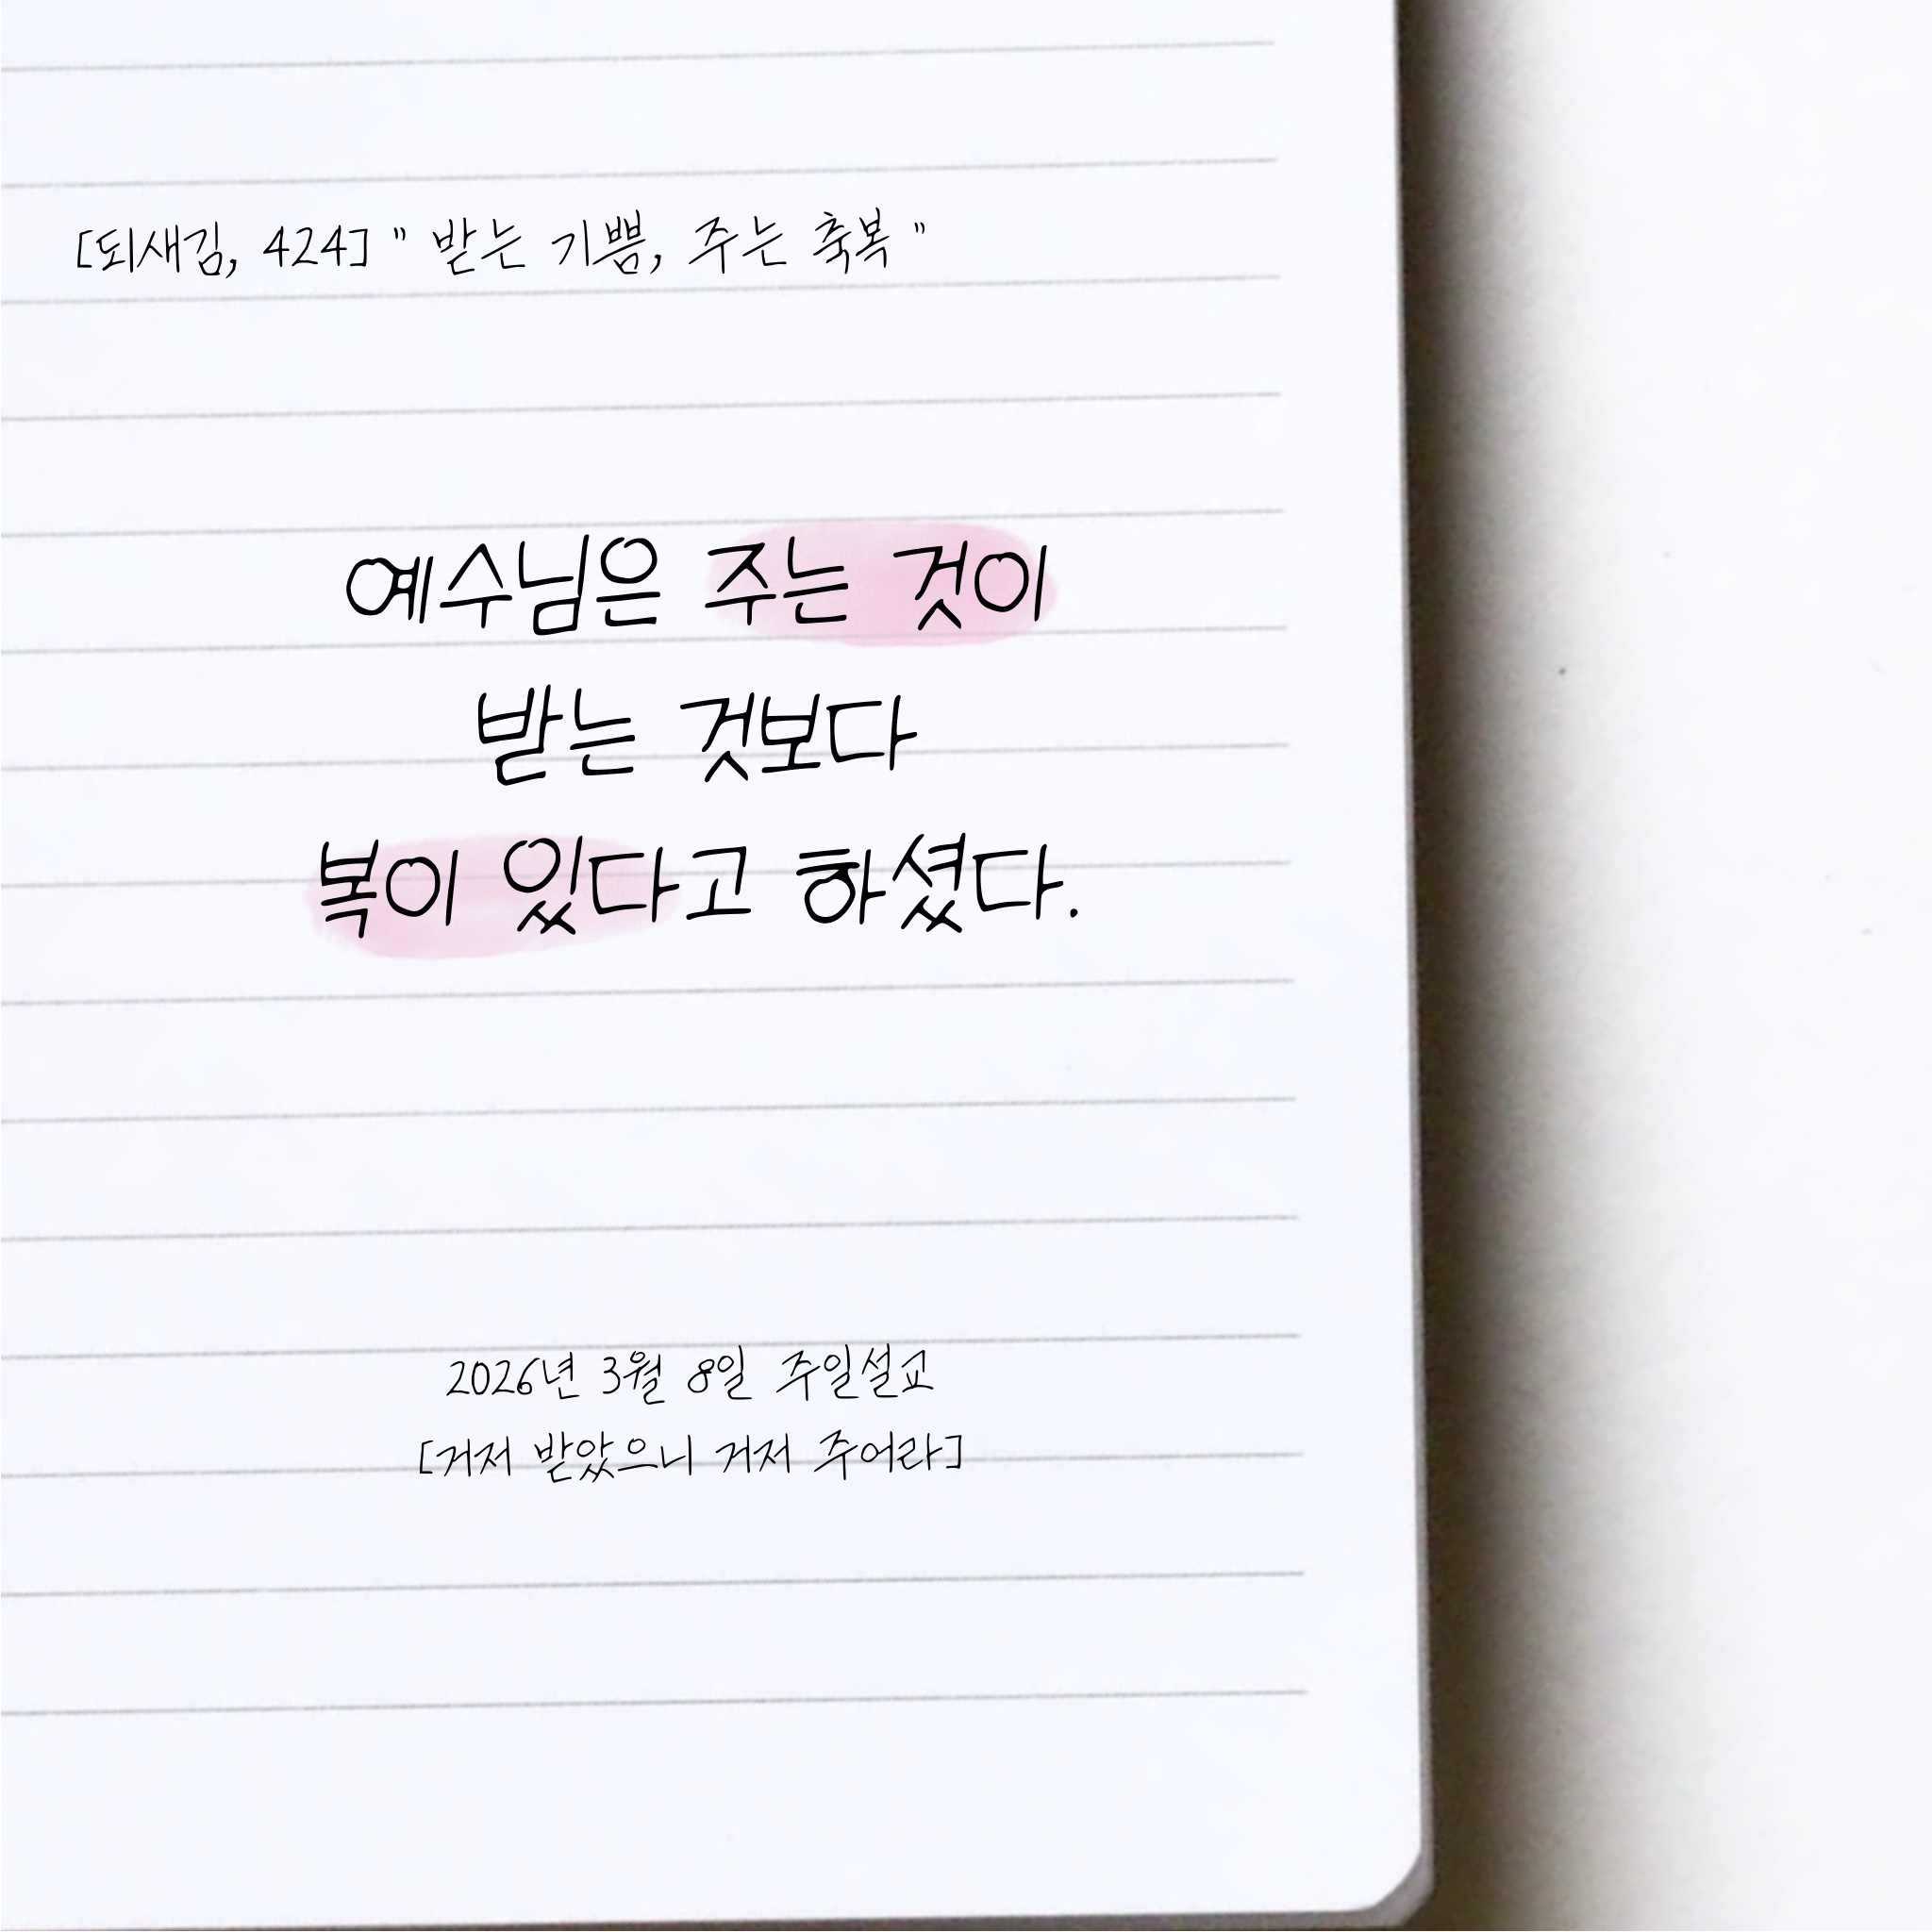 [되새김, 424] " 받는 기쁨, 주는 축복 "
예수님은 주는 것이
받는 것보다
복이 있다고 하셨다.
2026년 3월 8일 주일설교
[거저 받았으니 거저 주어라]